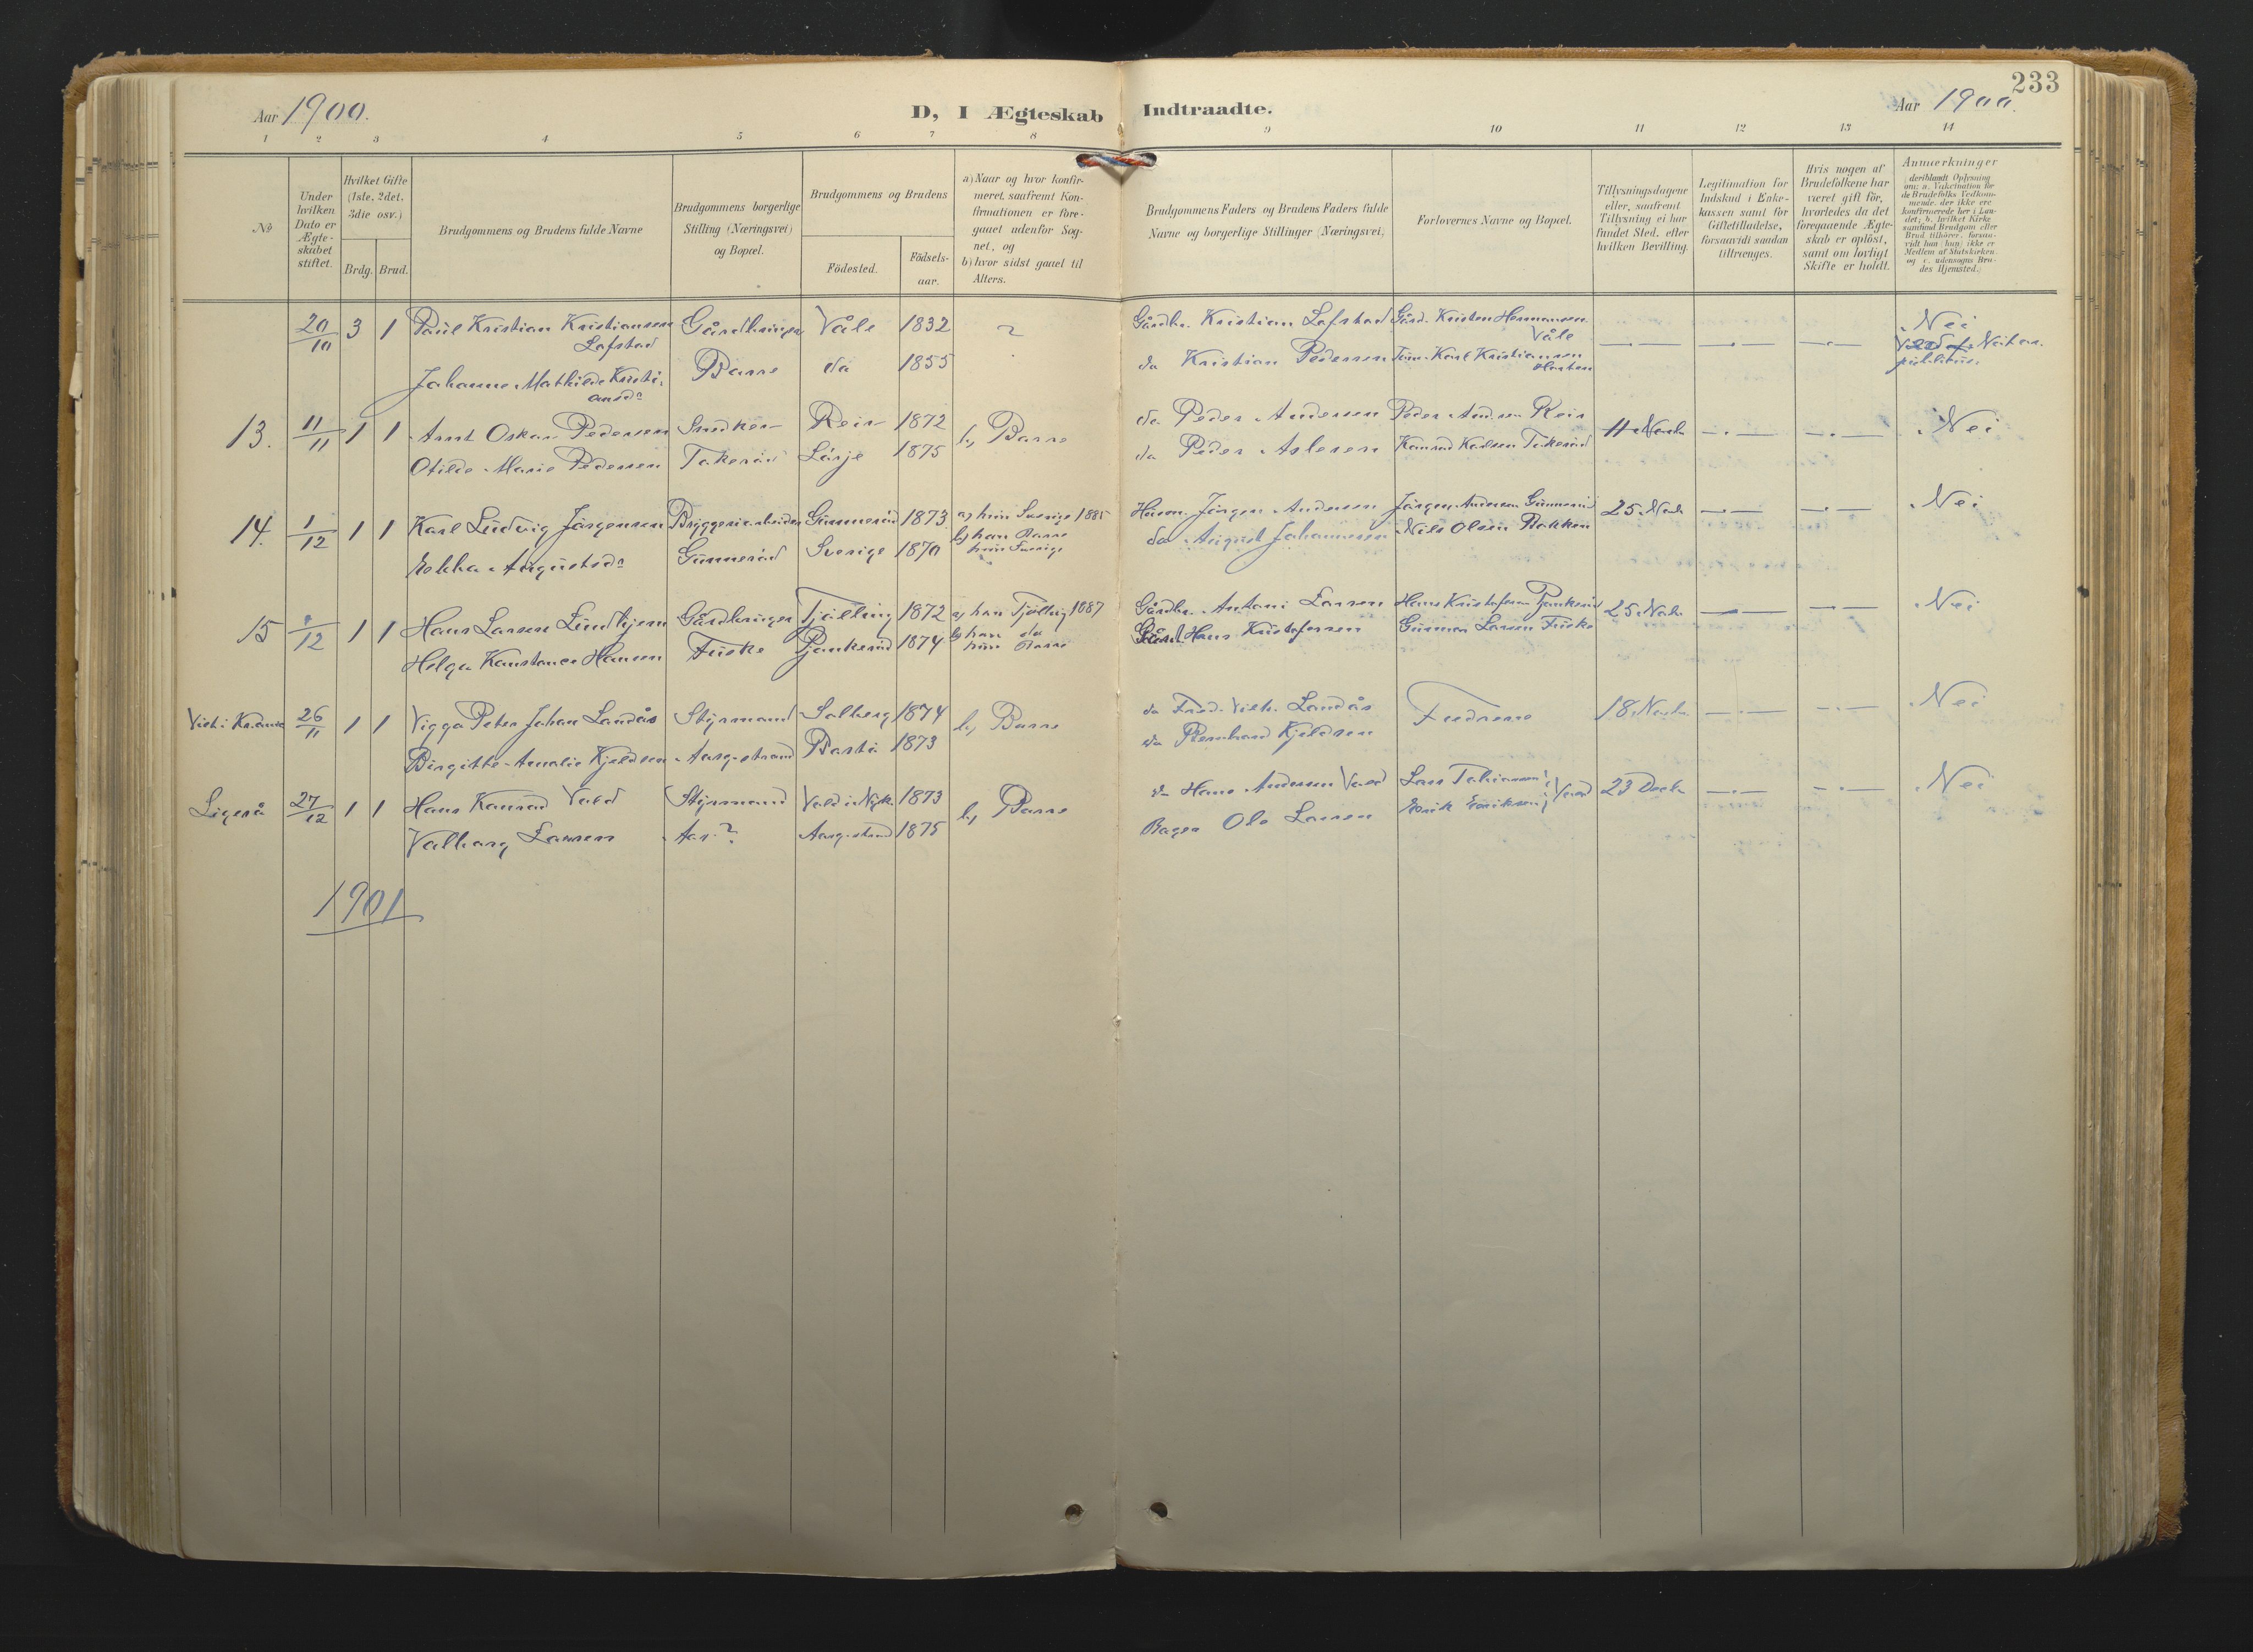 233
Aar 1900.
D, I Ægteskab Indtraadte.
Aar 1900.
1 2 3 4 5 6 7 8 9 10 11 12 13 14
No
Under hvilken Dato er Ægteskabet stiftet.
Hvilket Gifte (1ste, 2det, 3die osv.)
Brdg. Brud.
Brudgommens og Brudens fulde Navne
Brudgommens borgerlige Stilling (Næringsvei) og Bopæl.
Brudgommens og Brudens
Födested.
Födselsaar.
a) Naar og hvor konfirmeret, saafremt Konfirmationen er foregaaet udenfor Sognet, og
b) hvor sidst gaaet til Alters.
Brudgommens Faders og Brudens Faders fulde Navne og borgerlige Stillinger (Næringsvei)
Forlovernes Navne og Bopæl.
Tillysningsdagene eller, saafremt Tillysning ei har fundet Sted, efter hvilken Bevilling.
Legitimation for Indskud i Enkekassen samt for Giftetilladelse, forsaavidt saadan tiltrænges.
Hvis nogen af Brudefolkene har været gift för, hvorledes da det foregaaende Ægteskab er oplöst, samt om lovligt Skifte er holdt.
Anmærkninger
(deriblandt Oplysning om: a. Vakcination for de Brudefolks Vedkommende, der ikke ere konfirmerede her i Landet; b. hvilket Kirkesamfund Brudgom eller Brud tilhører, forsaavidt han (hun) ikke er Medlem af Statskirken og c. udensogns Brudes Hjemsted.)
20/10 3 1 Paul Kristian Kristiansen Gårdbruger Våle 1832 ? Gårdbr. Kristian Lofstad Gård. Kristen Hermansen Nei
Lofstad Våle
Johanne Mathilde Kristi- Borre do 1855 do Kristian Pedersen Karl Kristiansen
ansd.
13. 11/11 1 1 Arnt Oskar Pedersen Snedker Reir 1872 b, Borre do Peder Andersen Peder Andersen Reir 11 Novbr Nei
Otilde Marie Pedersen Tokeröd Lörje 1875 do Peder Aslesen Konrad Karlsen Tokeröd
14. 1/12 1 1 Karl Ludvig Jörgensen Bryggeriarbeider Gunneröd 1873 a, hun Sverige 1885 Husm. Jörgen Andersen Jörgen Andersen Gunneröd 25 Novb Nei
b, han Borre
hun Sverige
Augustsd. Gunneröd Sverige 1870 do August Johannesen Nils Olsen Bakken
15 /12 1 1 Hans Larsen Lindhjem Gårdbruger Tjölling 1872 a, han Tjölling 1887 Gårdbr. Antoni Larsen Hans Kristofersen 25 Novbr Nei
b, han do
hun Borre
Helga Konstance Hansen Fuske 1874 Gård. Hans Kristofersen Gunnar Larsen Fuske
Viet i Kr.ania 26/11 1 1 Viggo Peter Johan Landås Styrmand Solberg 1874 b, Borre do Fred. Vilh. Landås Fædrene 18 Novbr Nei
Birgitte Amalie Kjeldsen Aasgstrand Bastö 1873 do Bernhard Kjeldsen
Ligeså 27/12 1 1 Hans Konrad Vold Styrmand Vold i Nyk. 1873 b, Borre do Hans Andersen Vold Lars Tobiassen Vold 23 Decbr Nei
Erik Eriksen
Valborg Larsen Aas. ? Aasgstrand 1875 Bager Ole Larsen
1901